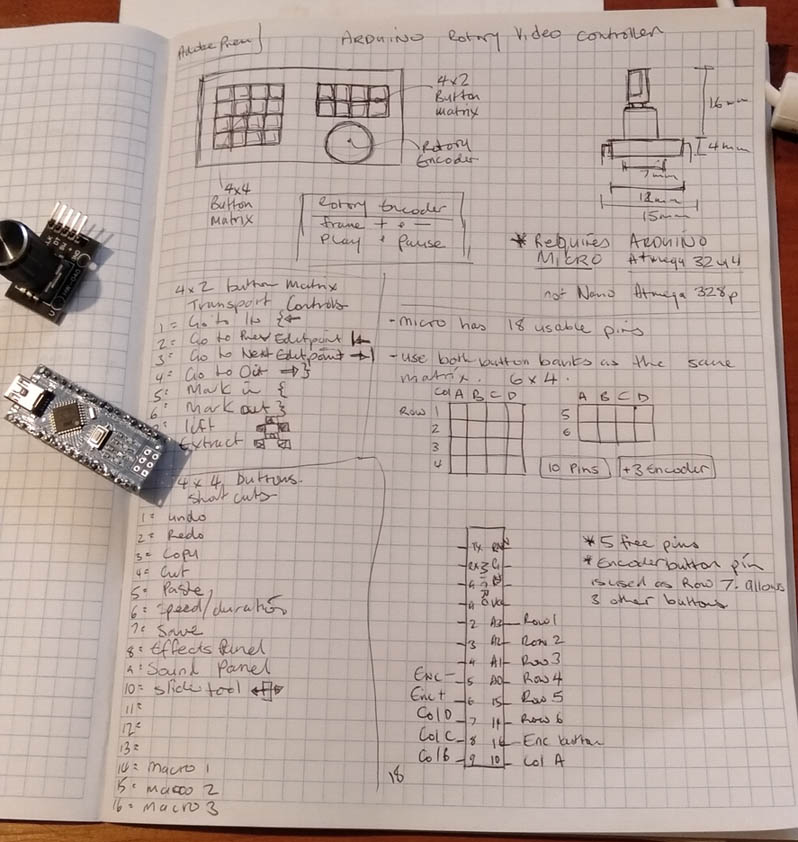 Adobe Prem
ARDUINO Rotary Video Controller
4x2
Button
matrix
Rotary
Encoder
4x4
Button
Matrix
Rotary Encoder
frame + • −
Play • Pause
16mm
4mm
7mm
12mm
15mm
* Requires ARDUINO
MICRO Atmega 32u4
not Nano Atmega 328p
4x2 button Matrix
Transport Controls
1 = Go to In {←
2 = Go to Prev Editpoint |←
3 = Go to Next Editpoint →|
4 = Go to Out →}
5 = Mark in {
6 = Mark out }
lift
Extract
- micro has 18 usable pins
- use both button banks as the same
matrix. 6x4.
Col A B C D
Row 1
2
3
4
A B C D
5
6
10 Pins
+3 Encoder
4x4 buttons.
Short cuts
1 = undo
2 = Redo
3 = Copy
4 = Cut
5 = Paste
6 = Speed/duration
7 = Save
8 = Effects Panel
9 = Sound Panel
10 = slide tool
11 =
12 =
13 =
14 = macro 1
15 = macro 2
16 = macro 3
* 5 free pins
* Encoder button pin
is used as Row 7. allows
3 other buttons
TX
2 A3 Row 1
3 A2 Row 2
4 A1 Row 3
Enc − 5 A0 Row 4
Enc + 6 15 Row 5
Col D 7 Row 6
Col C 8 14 Enc button
Col B 9 10 Col A
18